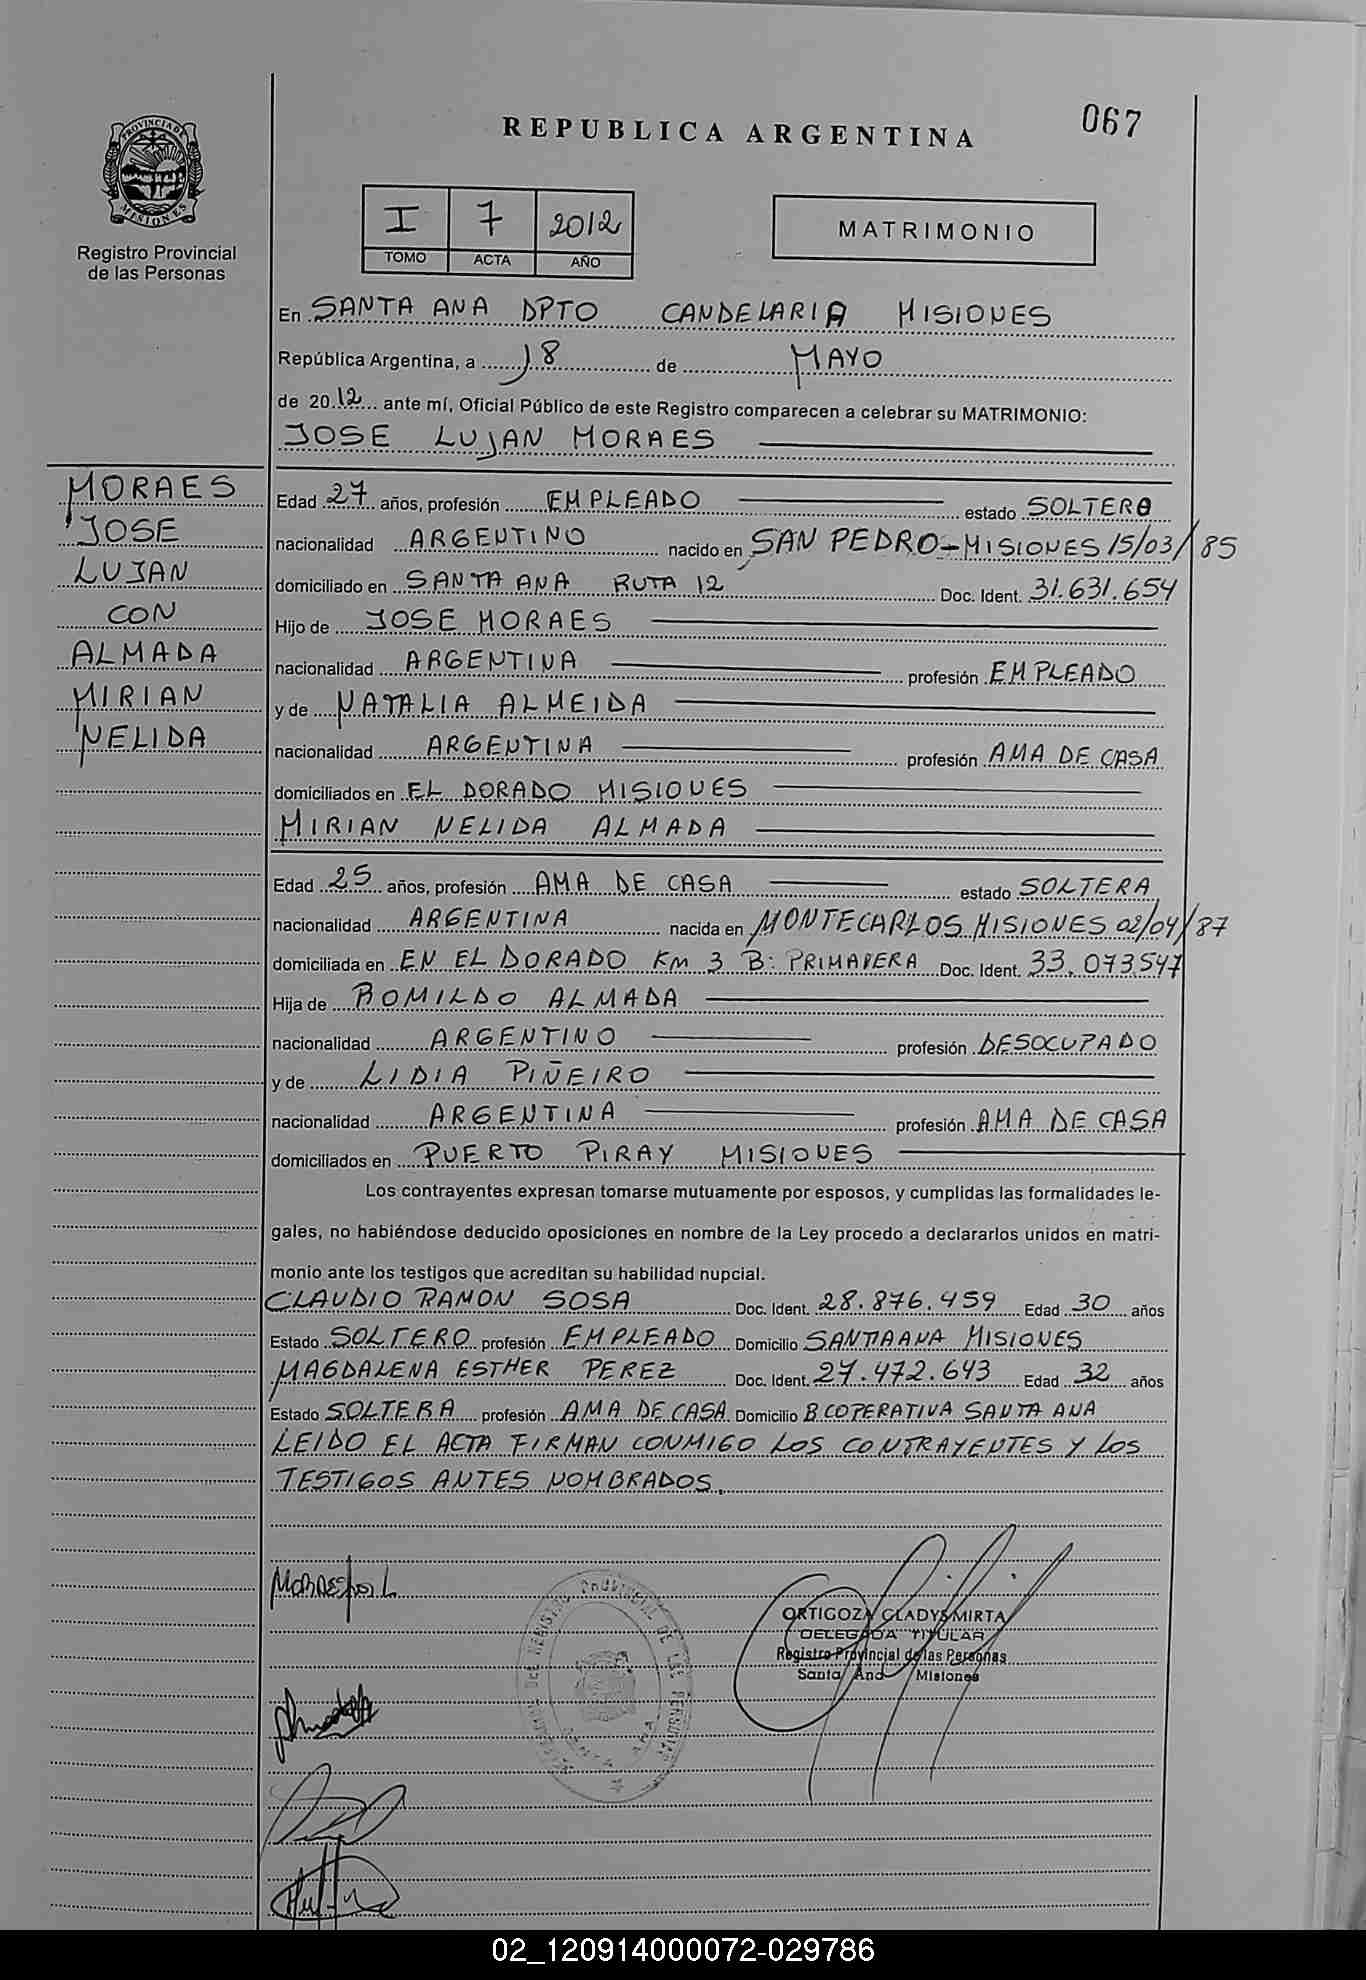 REPUBLICA ARGENTINA
067
PROVINCIA DE
MISIONES
Registro Provincial
de las Personas
I 7 2012
TOMO ACTA AÑO
MATRIMONIO
En SANTA ANA DPTO CANDELARIA MISIONES
República Argentina, a 18 de MAYO
de 2012 ante mí, Oficial Público de este Registro comparecen a celebrar su MATRIMONIO:
JOSE LUJAN MORAES
MORAES
JOSE
LUJAN
CON
ALMADA
MIRIAN
NELIDA
Edad 27 años, profesión EMPLEADO estado SOLTERO
nacionalidad ARGENTINO nacido en SAN PEDRO-MISIONES 15/03/85
domiciliado en SANTA ANA RUTA 12 Doc. Ident. 31.631.654
Hijo de JOSE MORAES
nacionalidad ARGENTINA profesión EMPLEADO
y de NATALIA ALMEIDA
nacionalidad ARGENTINA profesión AMA DE CASA
domiciliados en EL DORADO MISIONES
MIRIAN NELIDA ALMADA
Edad 25 años, profesión AMA DE CASA estado SOLTERA
nacionalidad ARGENTINA nacida en MONTECARLOS MISIONES 02/04/87
domiciliada en EN EL DORADO KM 3 B: PRIMAVERA Doc. Ident. 33.073.547
Hija de ROMILDO ALMADA
nacionalidad ARGENTINO profesión DESOCUPADO
y de LIDIA PIÑEIRO
nacionalidad ARGENTINA profesión AMA DE CASA
domiciliados en PUERTO PIRAY MISIONES
Los contrayentes expresan tomarse mutuamente por esposos, y cumplidas las formalidades le-
gales, no habiéndose deducido oposiciones en nombre de la Ley procedo a declararlos unidos en matri-
monio ante los testigos que acreditan su habilidad nupcial.
CLAUDIO RAMON SOSA Doc. Ident. 28.876.459 Edad 30 años
Estado SOLTERO profesión EMPLEADO Domicilio SANTA ANA MISIONES
MAGDALENA ESTHER PEREZ Doc. Ident. 27.472.643 Edad 32 años
Estado SOLTERA profesión AMA DE CASA Domicilio B COPERATIVA SANTA ANA
LEIDO EL ACTA FIRMAN CONMIGO LOS CONTRAYENTES Y LOS
TESTIGOS ANTES NOMBRADOS.
ORTIGOZA GLADYS MIRTA
DELEGADA TITULAR
Registro Provincial de las Personas
Santa Ana Misiones
REGISTRO PROVINCIAL DE LAS PERSONAS
SANTA ANA
02_120914000072-029786